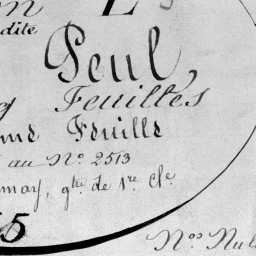 on L
dite
Peul,
Feuilles
Feuille
au N° 2513
may, g.de de 1re Cl.e
5
Nos Nul